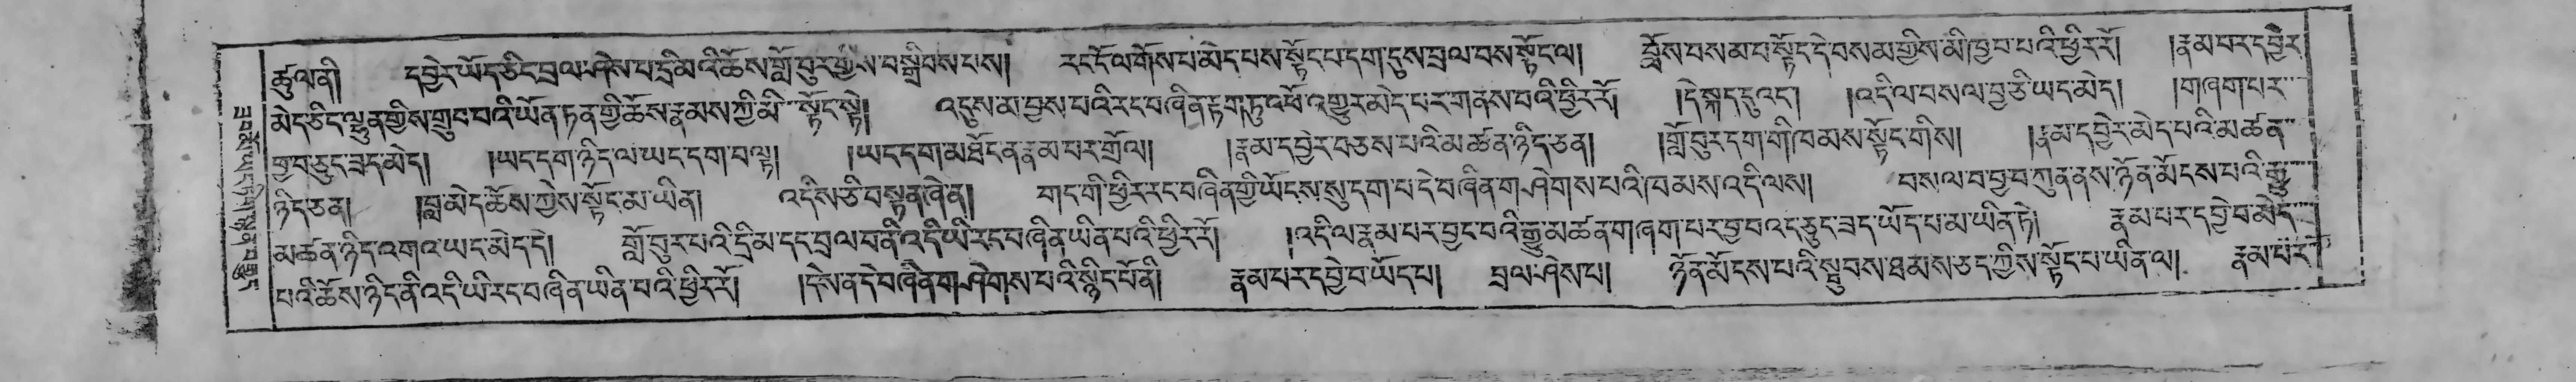 ཚུལ་ནི། དབྱེར་ཡོད་ཅིང་བྲལ་ཤེས་པ་དྲི་མའི་ཆོས་གློ་བུར་གྱིས་བསྒྲིབས་པས། རང་ངོ་ལ་གོས་པ་མེད་པས་སྟོང་པ་དག་དུས་བྲལ་བས་སྟོང་ལ། བློས་བསམ་བསྟོད་དེ་བསམ་གྱིས་མི་ཁྱབ་པའི་ཕྱིར་རོ། །རྣམ་པར་དབྱེར་
མེད་ཅིང་ལྷུན་གྱིས་གྲུབ་པའི་ཡོན་ཏན་གྱི་ཆོས་རྣམས་ཀྱི་མི་སྟོང་སྟེ། འདུས་མ་བྱས་པའི་རང་བཞིན་རྟག་ཏུ་འཕོ་འགྱུར་མེད་པར་གནས་པའི་ཕྱིར་རོ། །དེ་སྐད་དུའང་། །འདི་ལ་བསལ་བྱ་ཅི་ཡང་མེད། །གཞག་པར་
བྱ་བ་ཅུང་ཟད་མེད། །ཡང་དག་ཉིད་ལ་ཡང་དག་བལྟ། །ཡང་དག་མཐོང་ན་རྣམ་པར་གྲོལ། །རྣམ་དབྱེར་བཅས་པའི་མཚན་ཉིད་ཅན། །གློ་བུར་དག་གི་ཁམས་སྟོང་གིས། །རྣམ་དབྱེར་མེད་པའི་མཚན་
ཉིད་ཅན། །བླ་མེད་ཆོས་ཀྱིས་སྟོང་མ་ཡིན། འདིས་ཅི་བསྟན་ཞེ་ན། གང་གི་ཕྱིར་རང་བཞིན་གྱི་ཡོངས་སུ་དག་པ་དེ་བཞིན་གཤེགས་པའི་ཁམས་འདི་ལས། བསལ་བ་བྱ་བ་ཀུན་ནས་ཉོན་མོངས་པའི་རྒྱུ་
མཚན་ཉིད་འགའ་ཡང་མེད་དེ། གློ་བུར་པའི་དྲི་མ་དང་བྲལ་བ་ནི་འདི་ཡི་རང་བཞིན་ཡིན་པའི་ཕྱིར་རོ། །འདི་ལ་རྣམ་པར་བྱང་བའི་རྒྱུ་མཚན་གཞག་པར་བྱ་བའང་ཅུང་ཟད་ཡོད་པ་མ་ཡིན་ཏེ། རྣམ་པར་དབྱེ་བ་མེད་
པའི་ཆོས་ཉིད་ནི་འདི་ཡི་རང་བཞིན་ཡིན་པའི་ཕྱིར་རོ། །དེས་ན་དེ་བཞིན་གཤེགས་པའི་སྙིང་པོ་ནི། རྣམ་པར་དབྱེ་བ་ཡོད་པ། བྲལ་ཤེས་པ། ཉོན་མོངས་པའི་སྦུབས་ཐམས་ཅད་ཀྱིས་སྟོང་པ་ཡིན་ལ། རྣམ་པར་